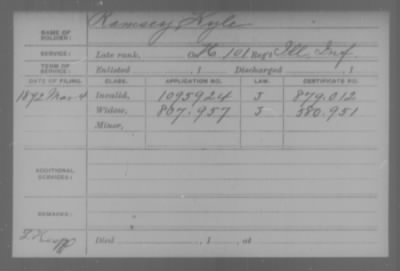 NAME OF SOLDIER: Ramsey Lyle
SERVICE: Late rank, Co H, 101 Reg't Ill. Inf.
TERM OF SERVICE: Enlisted , 1 Discharged , 1
DATE OF FILING. CLASS. APPLICATION NO. LAW. CERTIFICATE NO.
1892 Mar. 4 Invalid, 1095924 J 879.012
Widow, 807.957 J 580.951
Minor,
ADDITIONAL SERVICES:
REMARKS:
Died , 1 , at